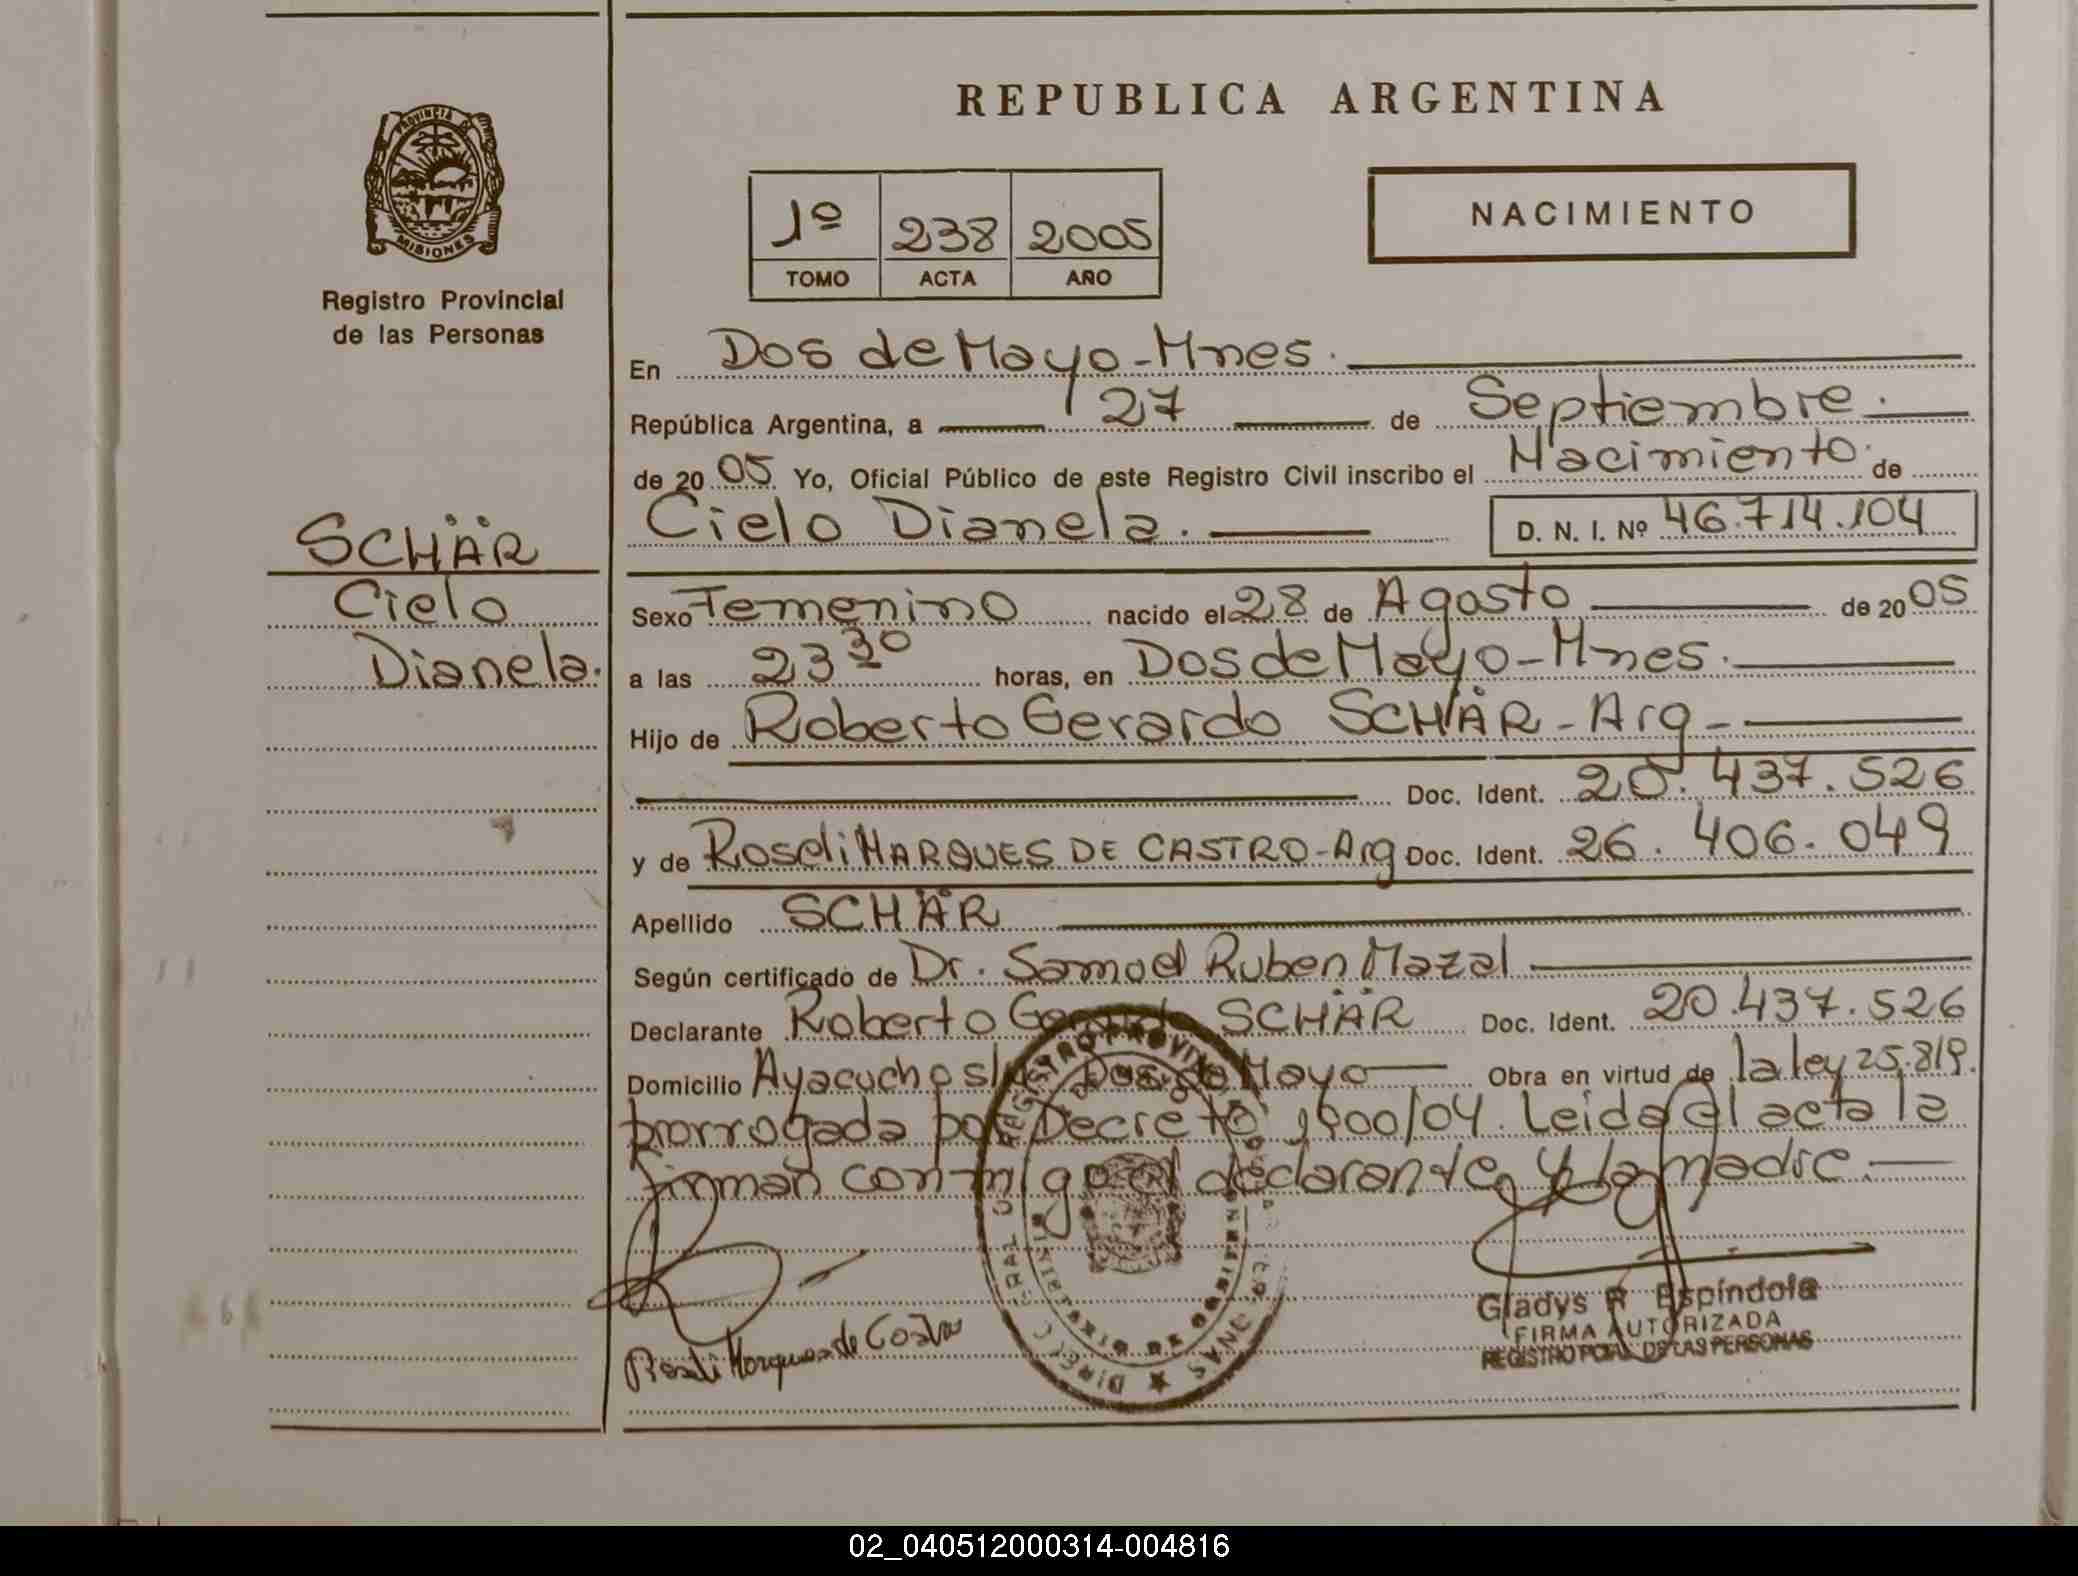 REPUBLICA ARGENTINA
PROVINCIA DE
MISIONES
Registro Provincial
de las Personas
1º 238 2005
TOMO ACTA AÑO
NACIMIENTO
En Dos de Mayo - Mnes.
República Argentina, a 27 de Septiembre.
de 2005 Yo, Oficial Público de este Registro Civil inscribo el Nacimiento. de
Cielo Dianela. D. N. I. Nº 46.714.104
SCHÄR
Cielo
Dianela.
Sexo Femenino nacido el 28 de Agosto de 2005
a las 23 30 horas, en Dos de Mayo - Mnes.
Hijo de Roberto Gerardo SCHÄR - Arg -
Doc. Ident. 20.437.526
y de Roseli MARQUES DE CASTRO - Arg Doc. Ident. 26.406.049
Apellido SCHÄR
Según certificado de Dr. Samuel Ruben Mazal
Declarante Roberto Gerardo SCHÄR Doc. Ident. 20.437.526
Domicilio Ayacucho s/ Dos de Mayo Obra en virtud de la ley 25.819.
prorrogada por Decreto 1900/04. Leida el acta la
firman conmigo el declarante y la madre.
Roseli Marques de Castro
Gladys R Espíndola
FIRMA AUTORIZADA
REGISTRO PCIAL DE LAS PERSONAS
02_040512000314-004816